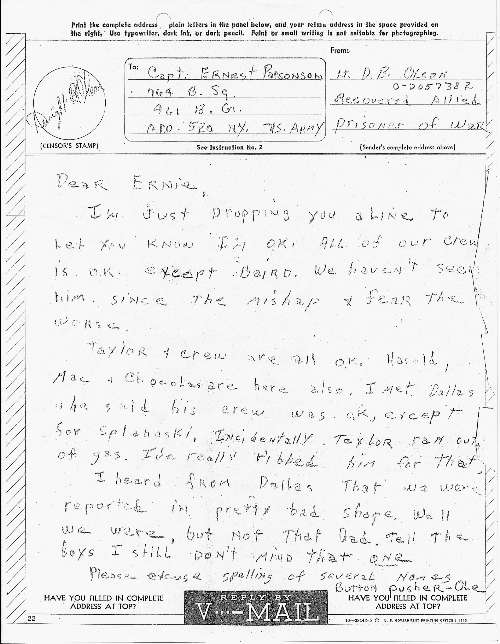 Print the complete address plain letters in the panel below, and your return address in the space provided on
the right. Use typewriter, dark ink, or dark pencil. Faint or small writing is not suitable for photographing.
To:
Capt. Ernest Parsonson
784 B. Sq.
461 B. Gr.
APO. 520 NY. US. Army
From:
Lt. D. B. Olson
0-2057382
Recovered Allied
Prisoner of War
(CENSOR'S STAMP)
See Instruction No. 2
(Sender's complete address above)
Dear Ernie,
I'm Just Dropping you a Line To
Let You Know I'm OK. All of our Crew
is O.K. except Baird. We haven't seen
him since The Mishap & Fear The
worse.
Taylor & crew are all ok. Harold,
Mac & are here also. I Met Dallas
who said his crew was ok, except
for Splanaski. Incidentally Taylor ran out
of gas. I've really ribbed him for That.
I heard from Dallas That we were
reported in pretty bad shape. Well
we were, but Not That bad. Tell The
boys I still Don't Mind that one
Please excuse spelling of several Names
Button pusher - Ole
HAVE YOU FILLED IN COMPLETE
ADDRESS AT TOP?
REPLY BY
V···—MAIL
HAVE YOU FILLED IN COMPLETE
ADDRESS AT TOP?
22